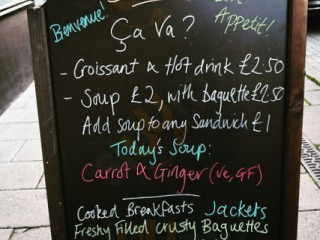 Bienvenue!
Appetit!
Ça Va?
- Croissant & Hot drink £2.50
- Soup £2, with baguette £2.50
Add soup to any Sandwich £1
Today's Soup:
Carrot & Ginger (Ve, GF)
Cooked Breakfasts Jackets
Freshly Filled Crusty Baguettes